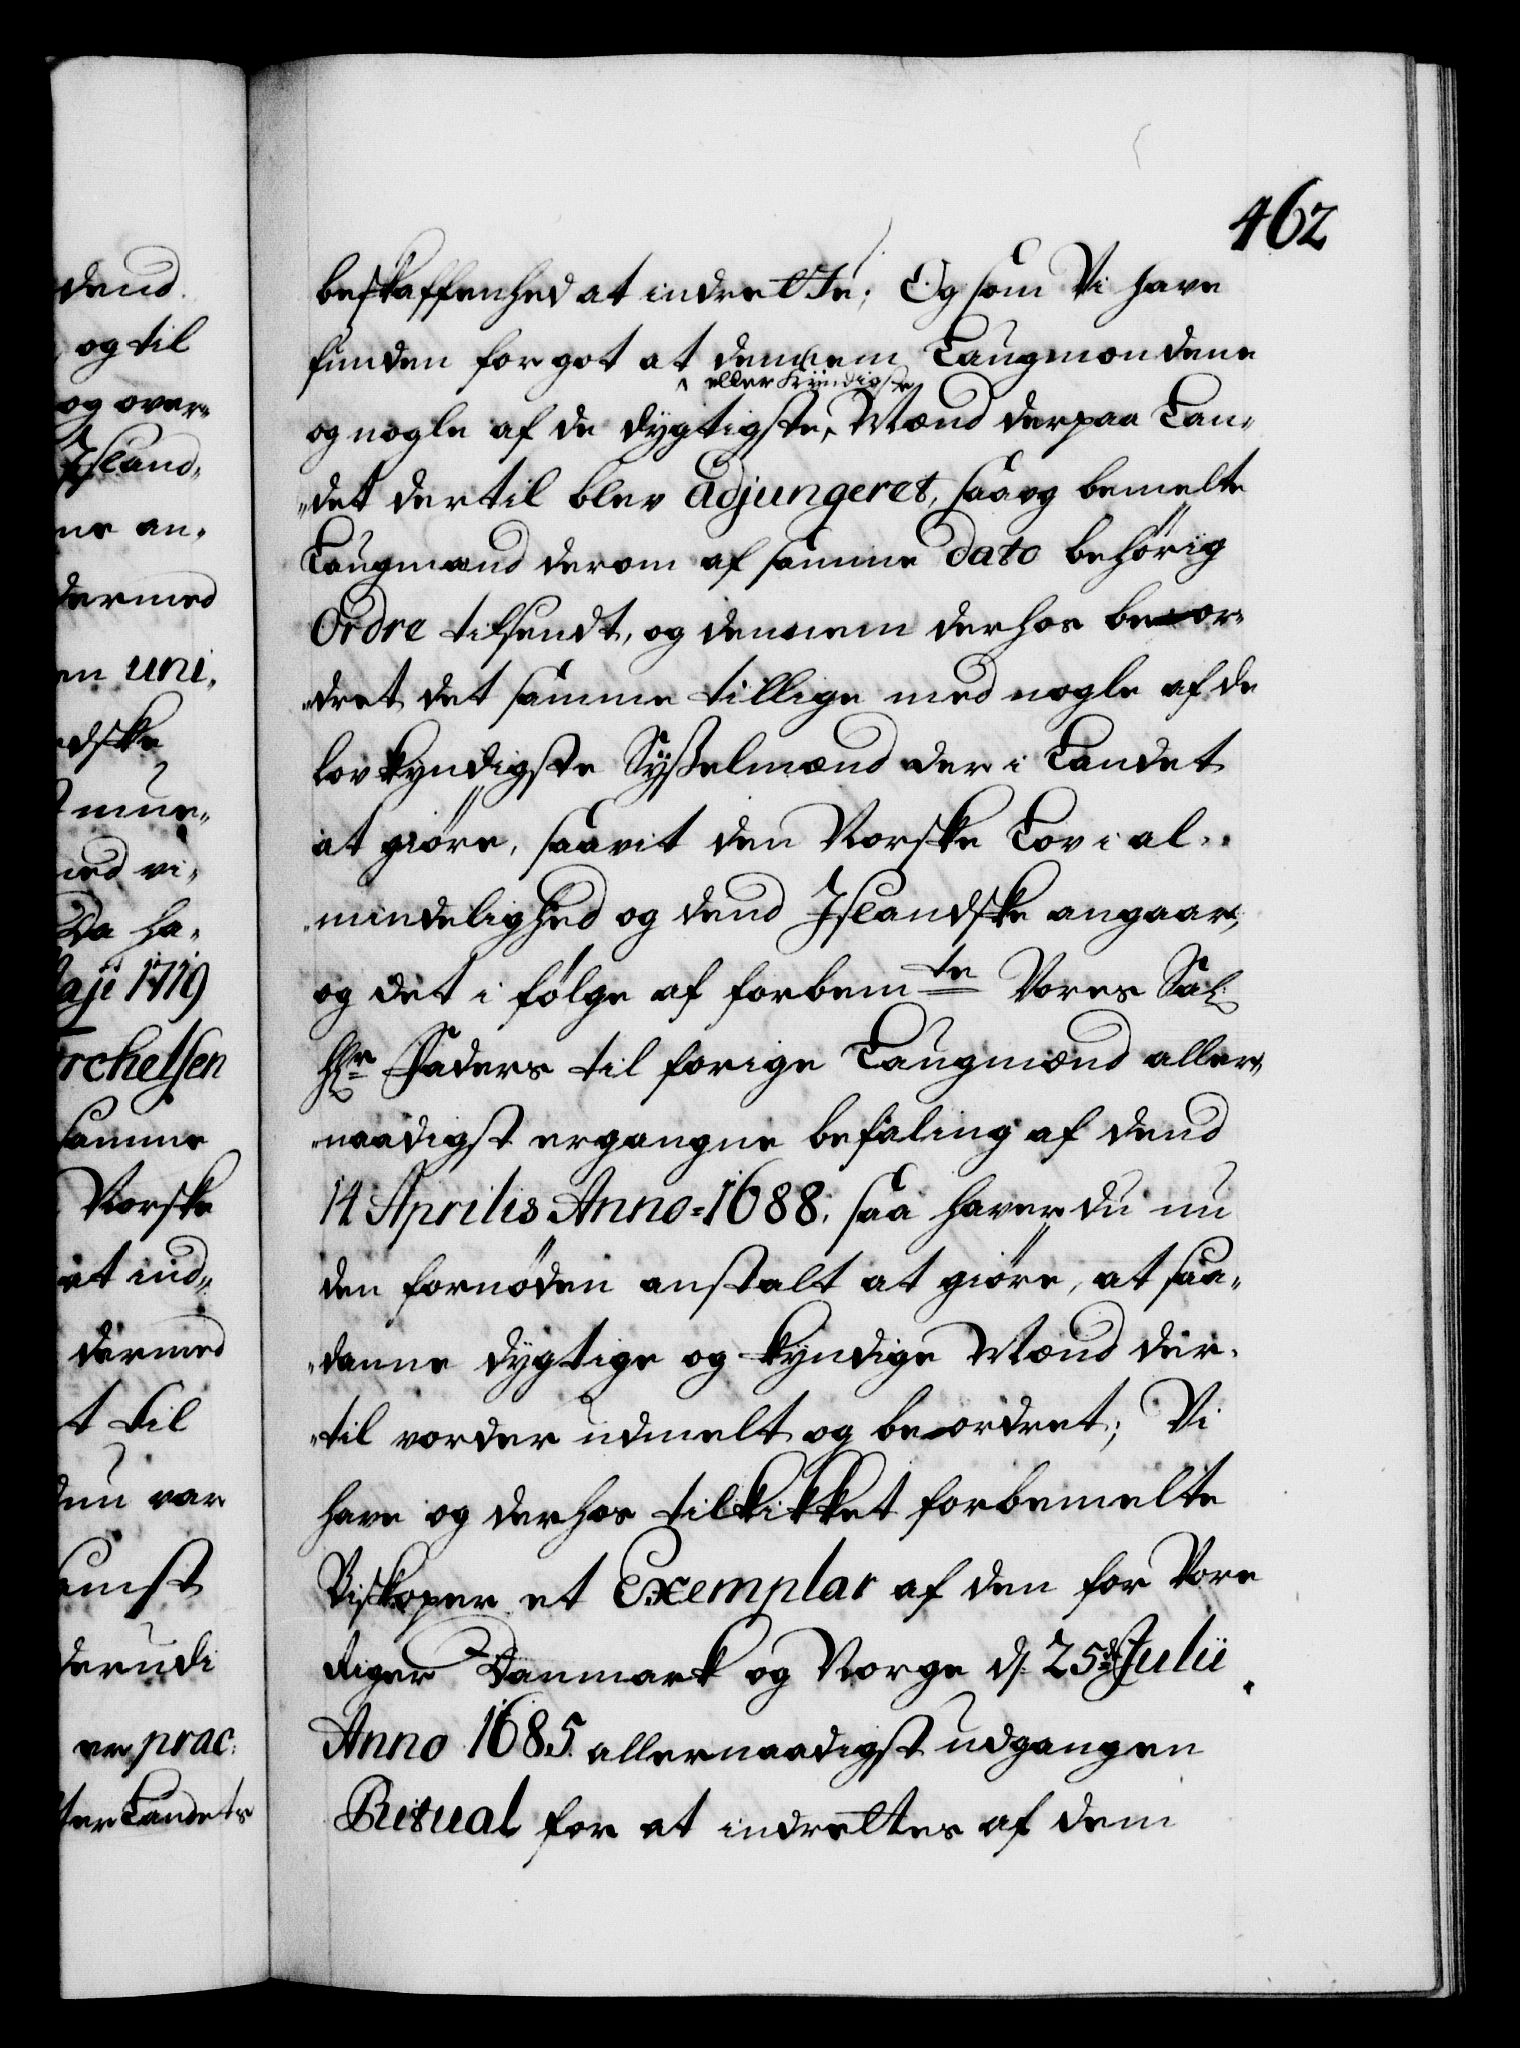 462
beskaffenhed at indrette; Og som Vi have
funden for got at dennem Laugmondene
eller kyndigste
og nogle af de dygtigste, Mænd derpaa Lan„
„det dertil blev adjungeret, saa og bemelte
Laugmand derom af samme dato behörig
Ordre tilsendt, og dennem derhos beor„
„dret det samme tillige med nogle af de
lovkyndigste Sysselmænd der i Landet
at giöre, saavit den Norske Lov i al„
„mindelighed og dend Islandske angaar,
og det i fölge af forbemte Vores Sal:
Hr Faders til forige Laugmænd aller„
„naadigst ergangne befaling af dend
14 Aprilis Anno 1688; saa haver du nu
den fornöden anstalt at giöre, at saa„
„danne dygtige og kyndige Mænd der„
„til vorder udmelt og beordret; Vi
have og derhos tilskikket forbemelte
Biskoper et Exemplar af den for Vore
Riger Danmark og Norge d. 25de Julii
Anno 1685 allernaadigst udgangen
Ritual for at indrettes af dem
dend
og til
og over„
Island„
ne an„
dermed
en uni„
dske
mue„
ned vi„
Da ha„
Maji 1719
rchelsen
samme
Norske
at ind„
dermed
t til
var
derudi
er prac:
ter Landets